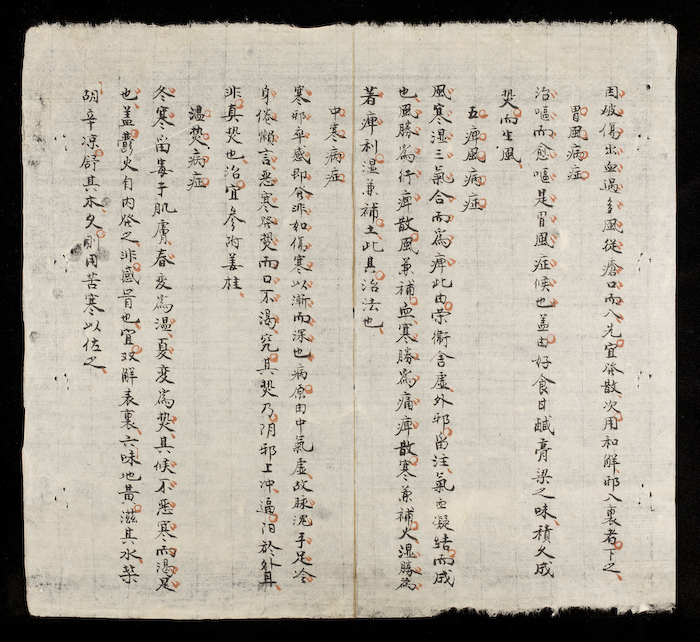 因破傷出血過多風從瘡口而入先宜發散次用和解邪入裏者下之
胃風病症
治嘔而愈嘔是胃風症候也蓋由好食甘鹹膏梁之味積久成
热而生風
五痺風病症
風寒湿三氣合而爲痺此由荣衞舍虛外邪留注氣血凝結而成
也風勝爲行痺散風兼補血寒勝爲痛痺散寒兼補火湿勝爲
著痺利湿兼補土此其治法也
中寒病症
寒邪卒感即發非如傷寒以漸而深也病原由中氣虛故脉沉手足冷
身倦懶言惡寒發热而口不渴究其热乃阴邪上冲逼阳於外耳
非真热也治宜參附姜桂
温热病症
冬寒留毒于肌膚春变爲温夏变爲热其候不惡寒而渴是
也蓋欝火自内發之非感冒也宜双解表裏六味地黄滋其水柴
胡辛凉舒其木夕則用苦寒以佐之